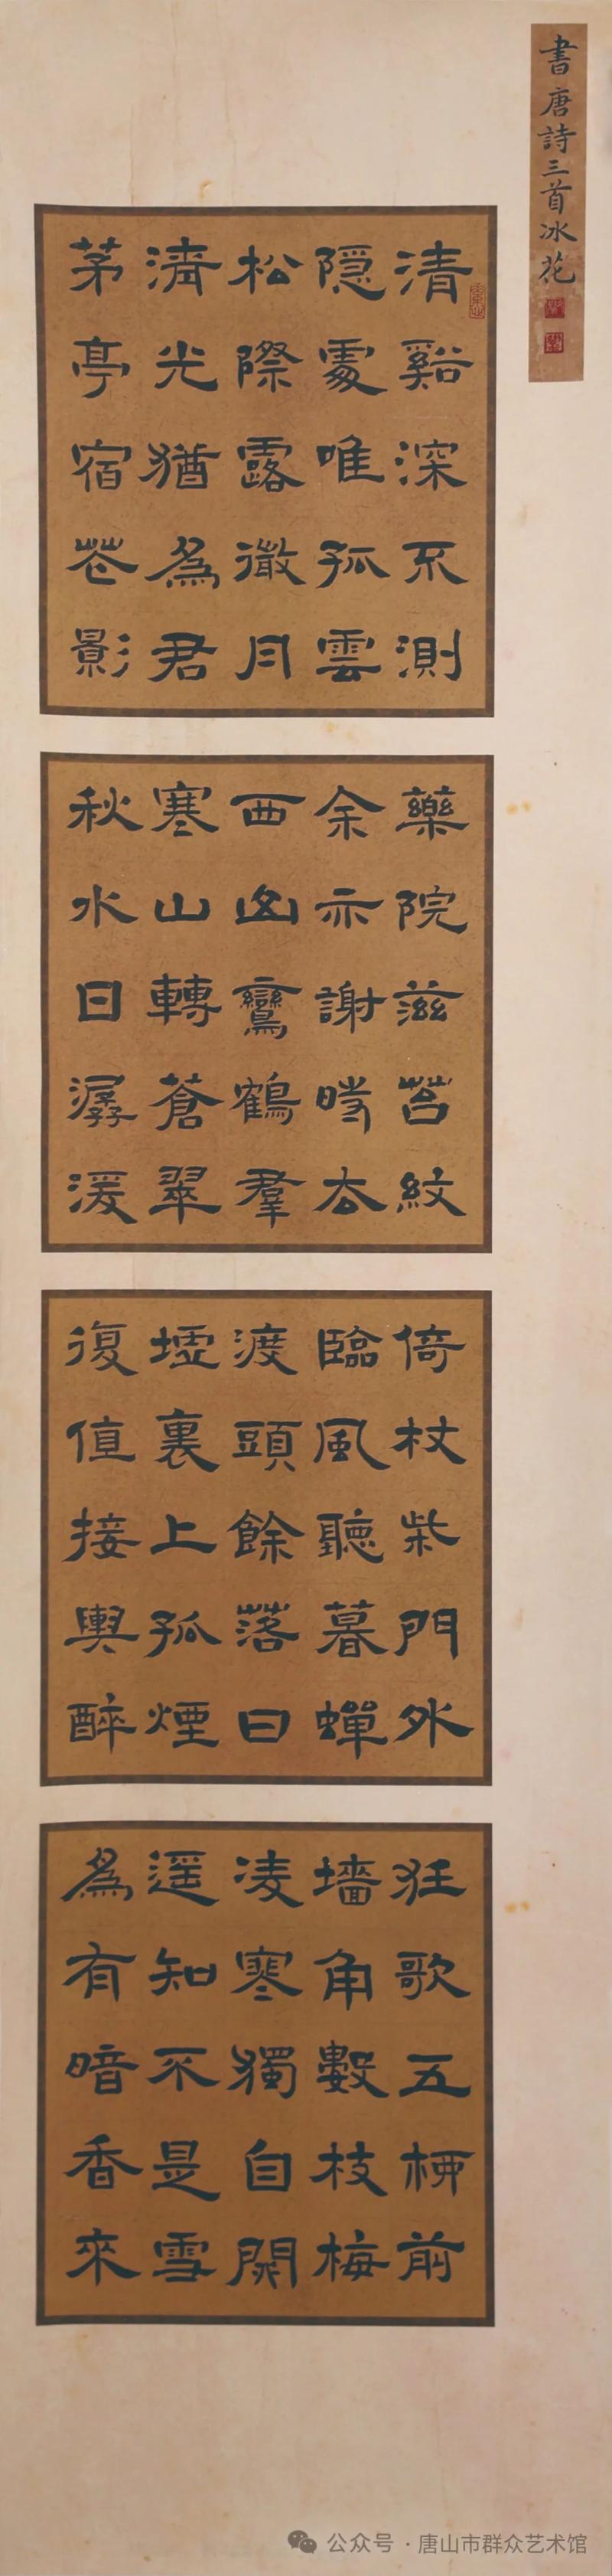 書唐詩三首冰花
清谿深不測
隱處唯孤雲
松際露微月
清光猶為君
茅亭宿花影
藥院滋苔紋
余亦謝時去
西山鸞鶴群
寒山轉蒼翠
秋水日潺湲
倚杖柴門外
臨風聽暮蟬
渡頭餘落日
墟裏上孤煙
復值接輿醉
狂歌五柳前
墻角數枝梅
凌寒獨自開
遥知不是雪
為有暗香來
公众号·唐山市群众艺术馆